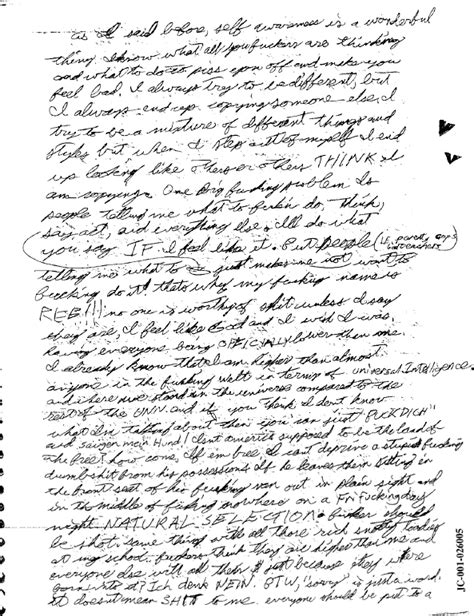 as I said before, self awareness is a wonderful
thing. I know what all you fuckers are thinking
and what to do to piss you off and make you
feel bad. I always try to be different, but
I always end up copying someone else. I
try to be a mixture of different things and
styles but when I step out of myself I end
up looking like others or others THINK I
am copying. One Big fucking problem Is
people telling me what to fuckin do, think,
say, act, and everything else. I'll do what
you say IF I feel like it. But people (I.E. parents, cops,
telling me what to just makes me not want to
fucking do it! thats why my fucking name is
REB!!! no one is worthy of shit unless I say
they are, I feel like God and I wish I was,
having everyone being OFFICIALLY lower than me.
I already know that I am higher than almost
anyone in the fucking welt in terms of universal Intelligence.
and where we stand in the universe compared to the
rest of the UNIV. and if you think I dont know
what Im talking about then you can just "FUCK DICH"
and saugen mein Hund! Isnt america supposed to be the land of
the free? how come, If im free, I cant deprive a stupid fucking
dumbshit from his possessions If he leaves them sitting in
the front seat of his fucking van out in plain sight and
in the middle of fucking nowhere on a Frifuckingday
night. NATURAL SELECTION. fucker should
be shot. same thing with all those rich snotty
at my school. fuckers think they are higher than me and
everyone else with all their $ just because they were
born into it? Ich denk NEIN. BTW, "sorry" is just a word.
It doesnt mean SHIT to me. everyone should be put to a
JC-001-026005